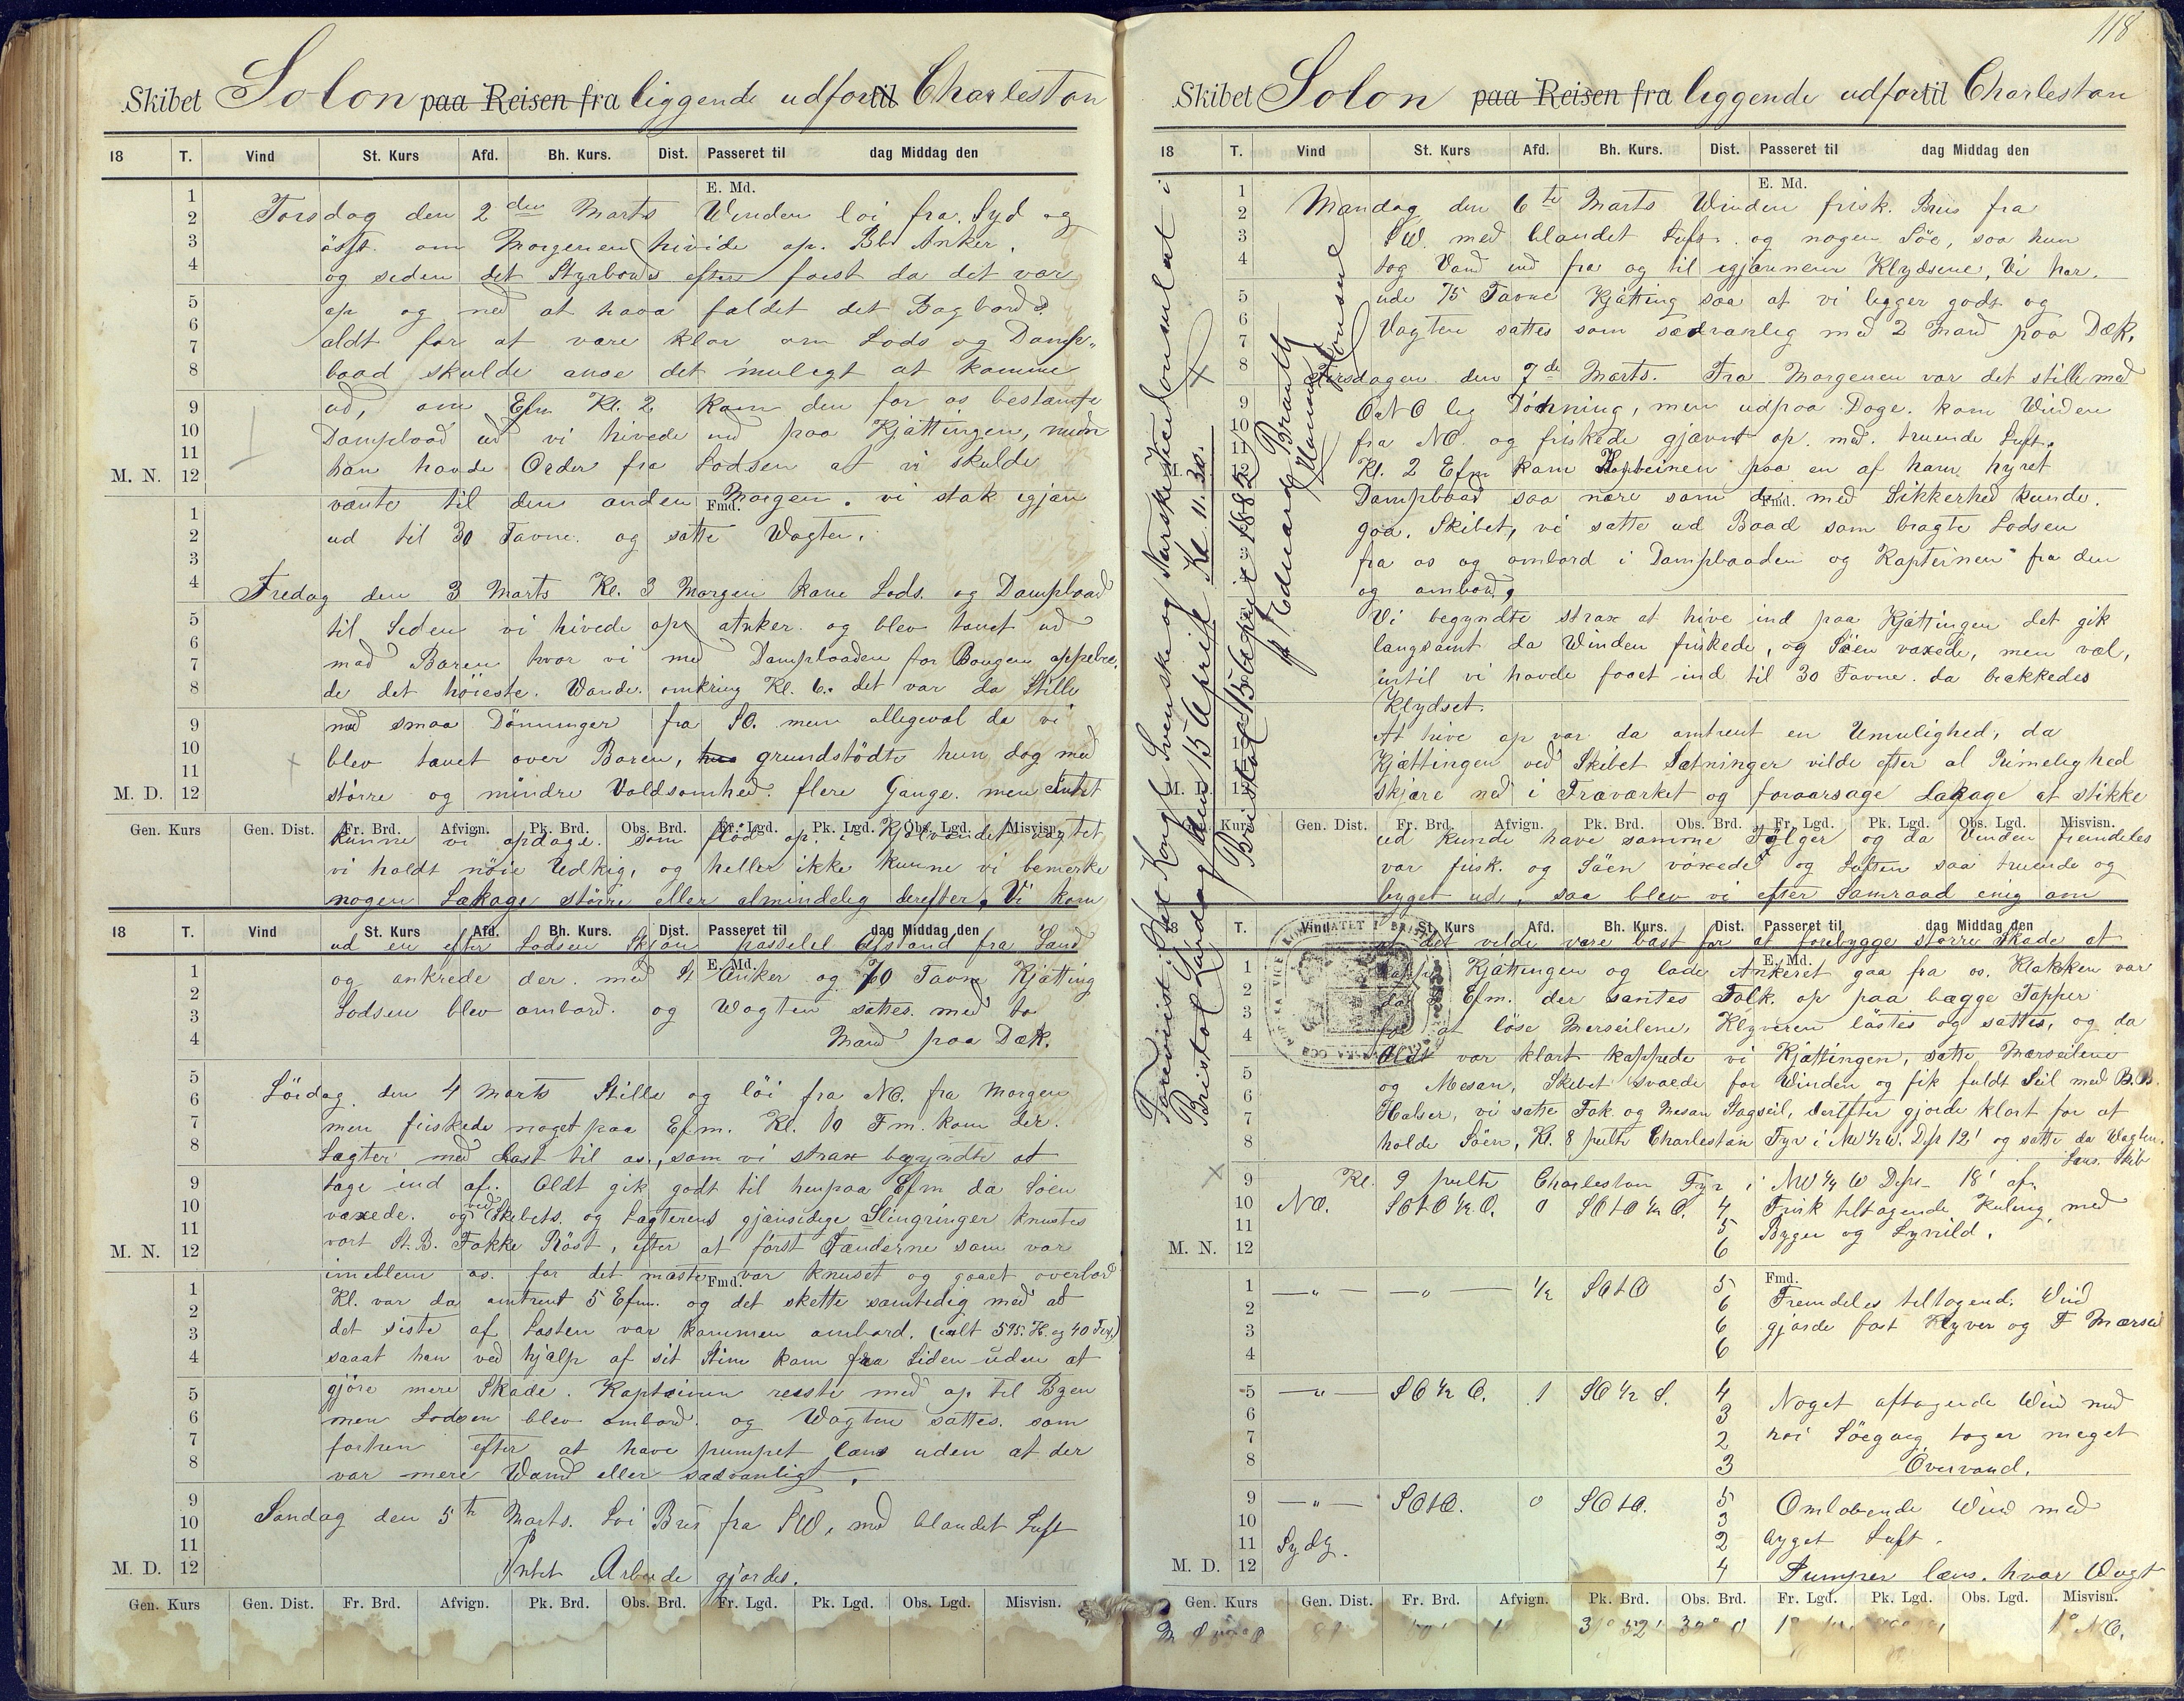 Skibet Solon paa Reisen fra liggende udfor til Charlestan
18 T. Vind St. Kurs Afd. Bh. Kurs. Dist. Passeret til dag Middag den
E. Md.
Torsdag den 2den Marts Winden løi fra Syd og
øst. om Morgenen hivide op. Bb. Anker.
og siden det Styrbords efter først da det var
op og ned at hava faldet det Bagbords.
aldt for at vare klar om Lods og Damp-
baad skulde anse det muligt at komme
ud, om Efm Kl. 2 kom den for os bestemte
Dampbaad ud vi hivede ind paa Kjättingen, men
han havde Order fra Lodsen at vi skulde
M. N.
vante til den anden Morgen. vi stak igjan
Fmd.
ud til 30 Favne. og satte Wagten.
Fredag den 3 Marts Kl. 3 Morgen kom Lods. og Dampbaad
til Siden vi hivede op Anker. og blev tauet ud
mod Baren hvor vi med Dampbaaden for Bougen oppebie,
de det höieste. Wande. omkring Kl. 6. det var da Stille
med smaa Dönninger fra SO. men allegeval da vi
blev tauet over Baren, grundstödte hun dog med
större og mindre Voldsomhed. flere Gange. men Intet
M. D.
Gen. Kurs Gen. Dist. Fr. Brd. Afvign. Pk. Brd. Obs. Brd. Fr. Lgd. Pk. Lgd. Obs. Lgd. Misvisn.
kunne vi opdage. som flöd op. i Kjölvandet
vi holdt nöie Udkig, og heller ikke kunne vi bemerke
nogen Lækage större eller almindelig derefter. Vi kom
18 T. Vind St. Kurs Afd. Bh. Kurs. Dist. Passeret til dag Middag den
ud en efter Lodsen Skjön passelel Afstand fra Land
E. Md.
og ankrede der. med St Anker og 70 Favne Kjätting
Lodsen blev ombord. og Wagten sattes. med to
Mand paa Dæk.
Löidag. den 4 Marts Stille og löi fra NO. fra Morgen
men friskede noget paa Efm. Kl. 10 Fm. kom der.
Lagter med Last til os, som vi strax begyndte at
tage ind af. Aldt gik godt til henpaa Efm da Söen
vaxede. og ved Skibets. og Lagterens gjænsidige Slingringer knustes
vort St. B. Fokke Röst, efter at först Fænderne som var
M. N.
imellem os. for det meste var knuset og gaaet overbord
Fmd.
Kl. var da omtrent 5 Efm. og det skette samtidig med at
det siste af Lasten var kommen ombord. (ialt 595. H. og 40 Tor,)
saaat han ved hjælp af sit Stim kom fra Siden uden at
gjöre mere Skade. Kapteinen reiste med op til Byen
men Lodsen blev ombord. og Wagten sattes. som
forhen efter at have pumpet læns uden at der
var mere Wand eller sædvanligt.
Söndag den 5te Marts. Löi Bris fra SW, med blandet Luft
Intet Arbeide gjordes.
M. D.
Gen. Kurs Gen. Dist. Fr. Brd. Afvign. Pk. Brd. Obs. Brd. Fr. Lgd. Pk. Lgd. Obs. Lgd. Misvisn.
118
Skibet Solon paa Reisen fra liggende udfor til Charlestan
18 T. Vind St. Kurs Afd. Bh. Kurs. Dist. Passeret til dag Middag den
E. Md.
Mandag den 6te Marts Winden frisk. Bris fra
SW. med blandet Luft. og nogen Söe, saa hun
tog Vand ind fra og til igjennem Klydsene, Vi har.
ude 75 Favne Kjätting saa at vi ligger godt og
Vagten sattes som sædvanlig med 2 Mand paa Dæk.
Tirsdagen den 7de Marts. Fra Morgenen var det stille med
ONO lig Dönning, men udpaa Dage. kom Winden
fra NO. og friskede gjævnt op. med. truende Luft.
Kl. 2 Efm kom Kapteinen paa en af ham hyret
Dampbaad saa nære som de med Sikkerhed kunde.
Fmd.
gaa. Skibet, vi satte ud Baad som bragte Lodsen
fra os og ombord i Dampbaaden og Kapteinen fra den
og ombord,
Vi begyndte strax at hive ind paa Kjättingen det gik
langsamt da Winden friskede, og Söen vaxede, men vel,
intil vi havde faaet ind til 30 Favne. da brækkedes
Klydset.
At hive op var da omtrent en Umulighed, da
Kjættingen ved Skibet Sætninger vilde efter al Rimelighed
skjære ned i Traværket og foraarsage Lækage at stikke
Gen. Kurs Gen. Dist. Fr. Brd. Afvign. Pk. Brd. Obs. Brd. Fr. Lgd. Pk. Lgd. Obs. Lgd. Misvisn.
ud kunde have samme Fölger og da Vinden fremdeles
var frisk. og Söen voxede og Luften saa truende og
byget ud, saa blev vi efter Samraad enig om
T. Vind St. Kurs Afd. Bh. Kurs. Dist. Passeret til dag Middag den
at det vilde være bæst for at forebygge större Skade at
E. Md.
kappe Kjættingen og lade Ankeret gaa fra os. Klokken var
Efm. der santes Folk. op paa begge Topper
for at löse Merseilene, Klyveren löstes og sattes, og da
Aldt var klart kappede vi Kjættingen, satte Mærseilene
og Mesan, Skibet svaiede for Winden og fik fuldt Seil med B.B.
Halser, vi satte Fok og Mesan Stagseil, derefter gjorde klart for at
holde Söen, Kl. 8 peilte Charlestan Fyr i NW ½ W. Dist 12' og satte da Wagten.
Læns. Skib
Kl. 9 peilte Charleston Fyr i NW ¼ W Dist 18' af.
NO. SOtO ½ O. 0 SOtO ½ O. 4 Frisk tiltagende Kuling med
5 Byger og Lynild.
M. N. 6
Fmd.
—"— —"— ½ SOtO 5 Fremdeles tiltagende Wind
6 gjorde fast Klyver og F Mærseil
6
6
—"— SO ½ O. 1 SO ½ S. 4 Noget aftagende Wind med
3
2 höi Söegang tager meget
3 Overvand.
—"— SOtO. 0 SOtO. 5 Omlöbende Wind med
3
Sydlg. 2 byget Luft.
M. D. 4 Pumper læns. hver Vagt
Gen. Kurs Gen. Dist. Fr. Brd. Afvign. Pk. Brd. Obs. Brd. Fr. Lgd. Pk. Lgd. Obs. Lgd. Misvisn.
31° 52' 1° NO.
Forevist i Det Kongl. Svenske og Norske Vicekonsulat i
Bristol Lördag den 15 April Kl. 11.30.
Bristol 15 April 1882